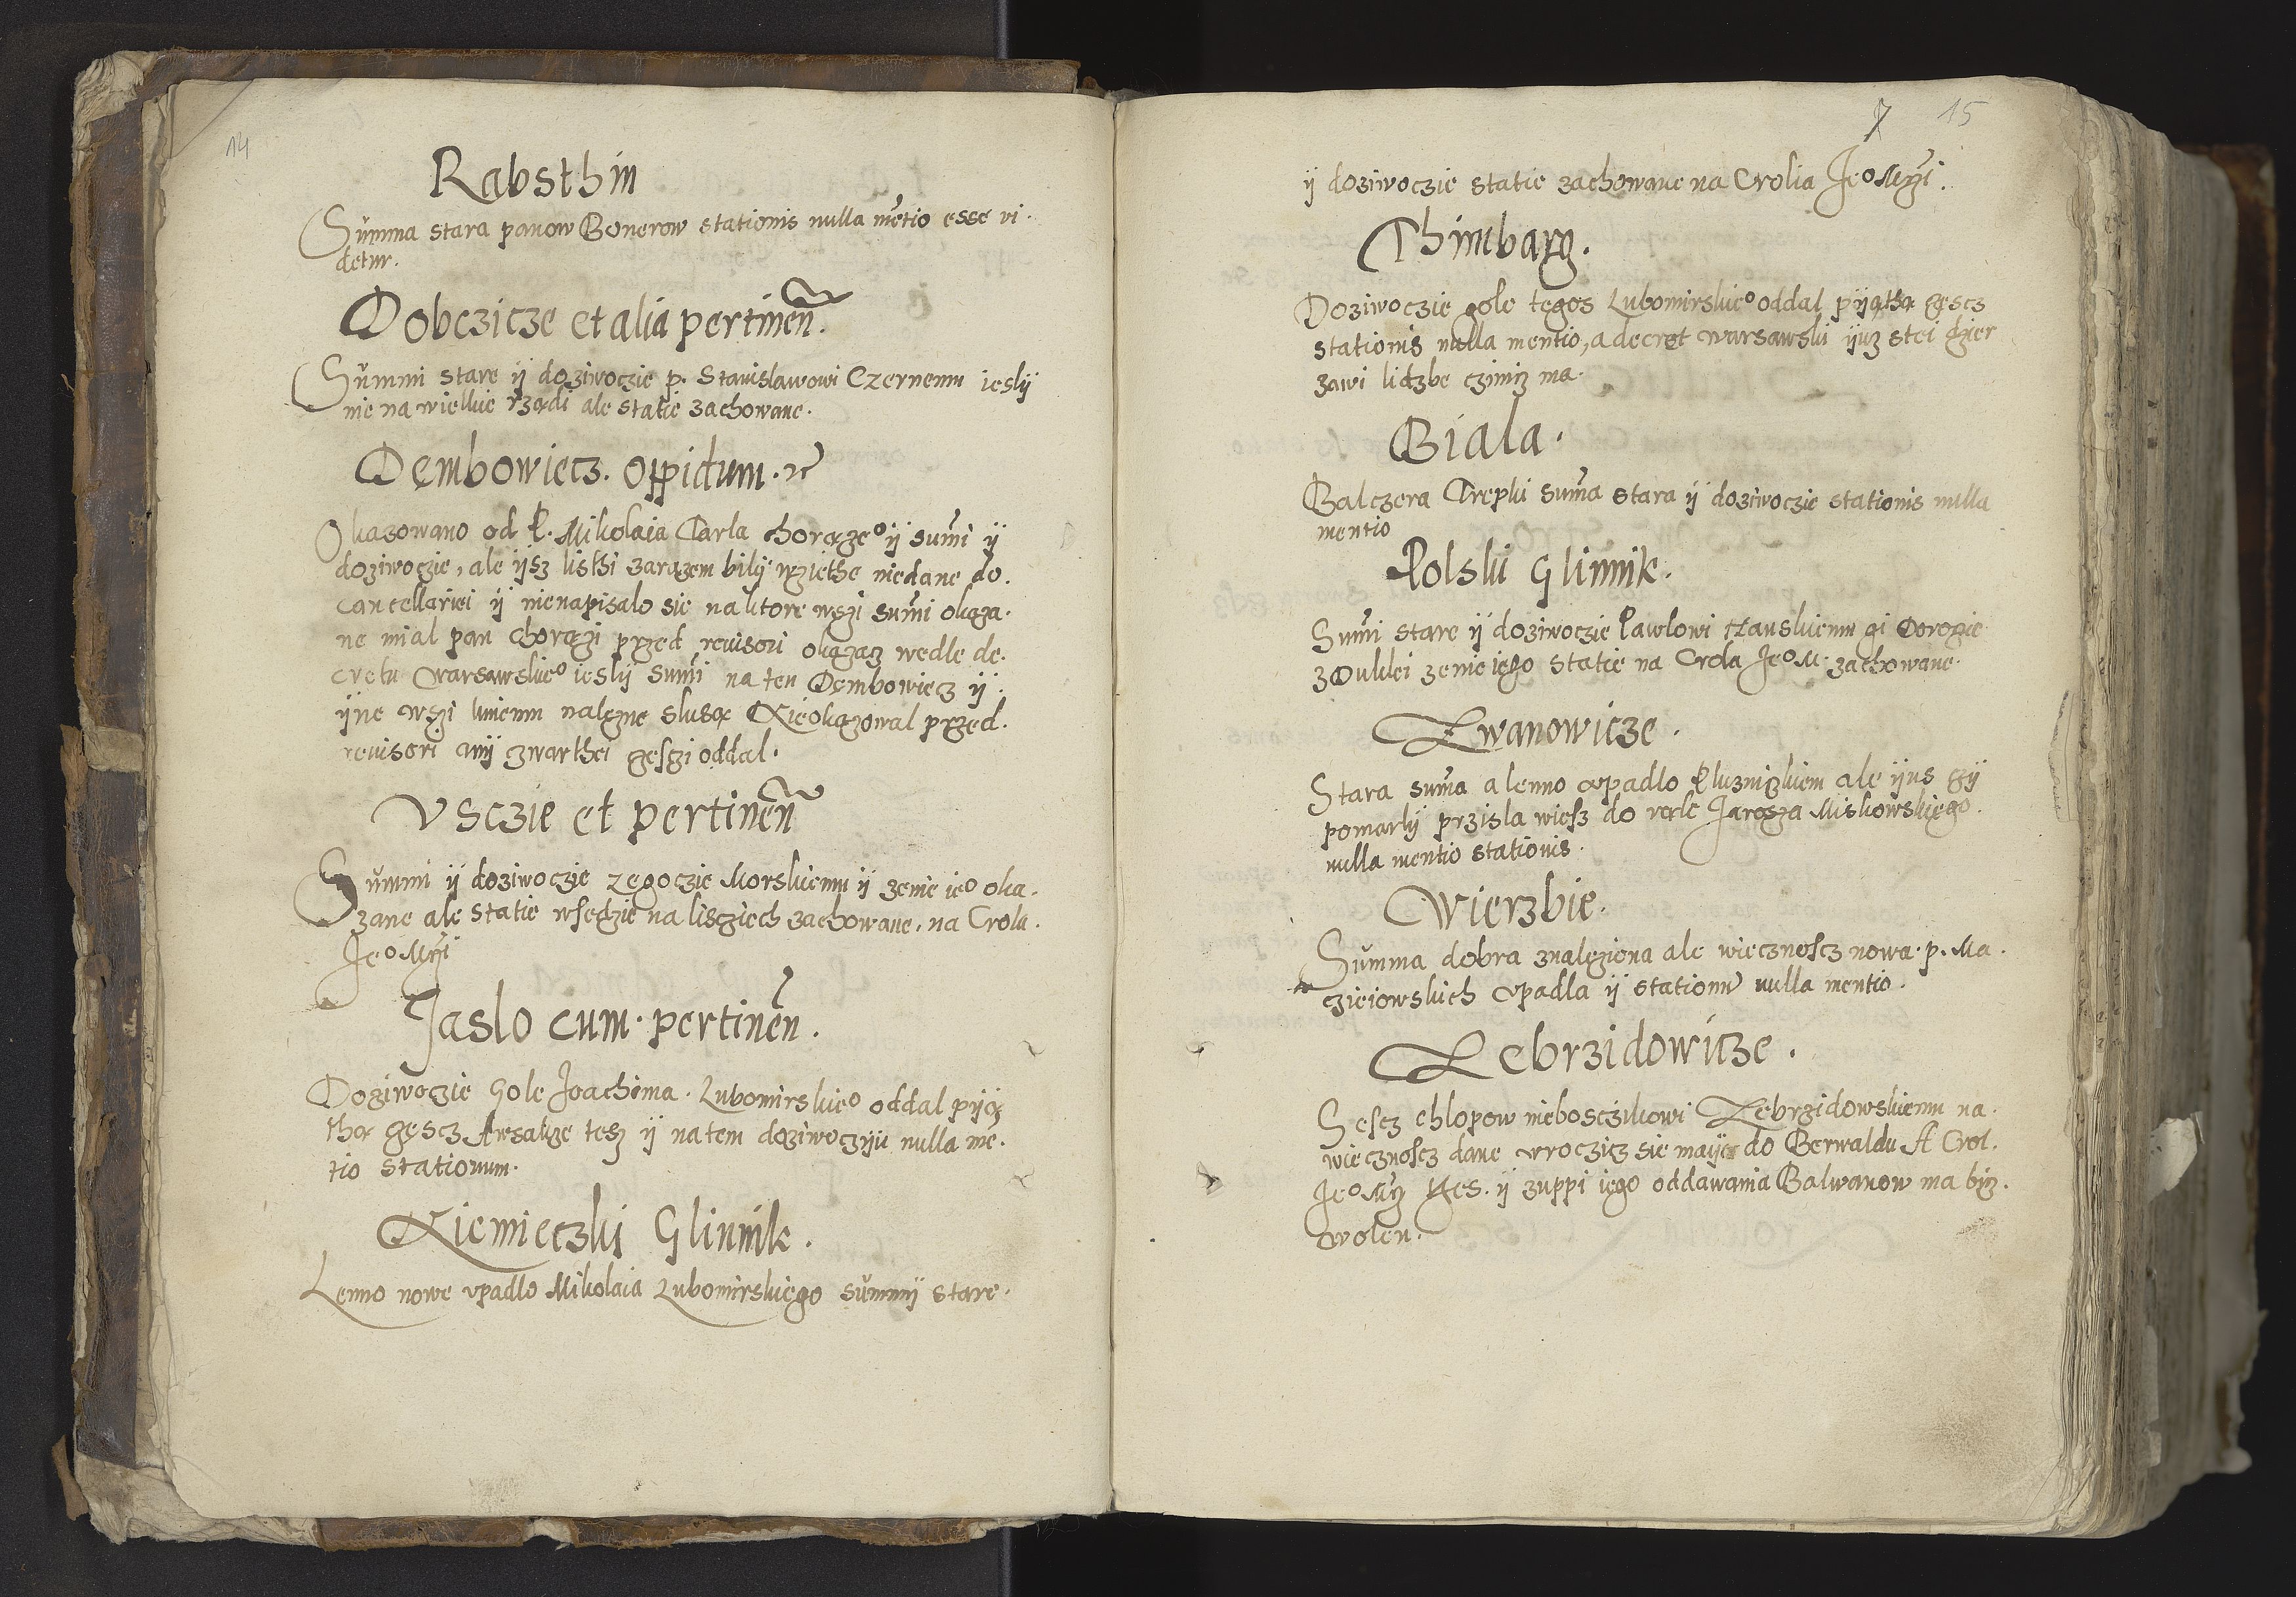 14
Rabsthin
Summa stara panow Bonerow stationis nulla mẽtio esse vi.
detur.
Dobczicze et alia pertineñ.
Sũmmi stare ÿ doziwoczie p. Stanislawowi Czernemu ieslÿ
nie na wielkie rządi ale statie zachowane.
Dembowiecz. oppidum.
Okazowano od P. Mikolaia Tarla chorąze° ÿ sum̃i ÿ
doziwoczie, ale ÿsz listhi zarazem bilÿ wziethe niedane do.
cancellariei ÿ nienapisalo sie na ktore wszi sum̃i okaza.
ne mial pan chorązi przed reuisori okazacz wedle de.
cretu warsawskie° ieslÿ sum̃i na ten Dembowiecz ÿ
ÿne wszi kniemu nalezne slusą Nieokazowal przed.
reuisori anÿ czwarthei zesczi oddal.
Vsczie et pertineñ
Sũmmi ÿ doziwoczie zegoczie Morskiemu ÿ zenie ie° oka.
zane ale statie wsedzie na lisciech zachowane. na Crola.
Je° Mczi
Jaslo cum. pertineñ.
Doziwoczie gole Joachima. Lubomirskie° oddal pÿą
thą gęscz Awsakze tesz ÿ natem doziwoczÿu nulla mẽ.
tio stationum.
Niemieczki Glinnik.
Lenno nowe vpadlo Mikolaia Lubomirskiego sũmmÿ stare.
7 15
ÿ doziwoczie statie zachowane na Crolia Je° Mczi.
Thimbarg.
Doziwoczie gole tegos Lubomirskie° oddal pÿąthą gęscz
stationis nulla mentio, a decret warsawski ÿuz stei dzier
zawi lidzbe czinicz ma.
Biala.
Balczera Trepki sum̃a stara ÿ doziwoczie stationis nulla
mentio
Polski Glinnik.
Sum̃i stare ÿ doziwoczie Pawlowi gi Dorogie
zDuklei zenie iego statie na Crola Je° M. zachowane.
Zwanowicze.
Stara sum̃a a lenno vpadlo Pluzniczkiem ale ÿus gÿ
pomarlÿ przisla wiesz do ręke Jarosza Miskowskiego.
nulla mentio stationis.
Wierzbie.
Sũmma dobra znaleziona ale wiecznoscz nowa. p. Ma.
czieiowskich vpadla ÿ stationũ nulla mentio.
Zebrzidowicze.
Sescz chlopow nieboscżikowi Zebrzidowskiemu na.
wiecznoscz dane wroczicz sie maÿą do Berwaldu A Crol.
Je° Mcz ÿ zuppi iego oddawania Balwanow ma bicz.
wolen.